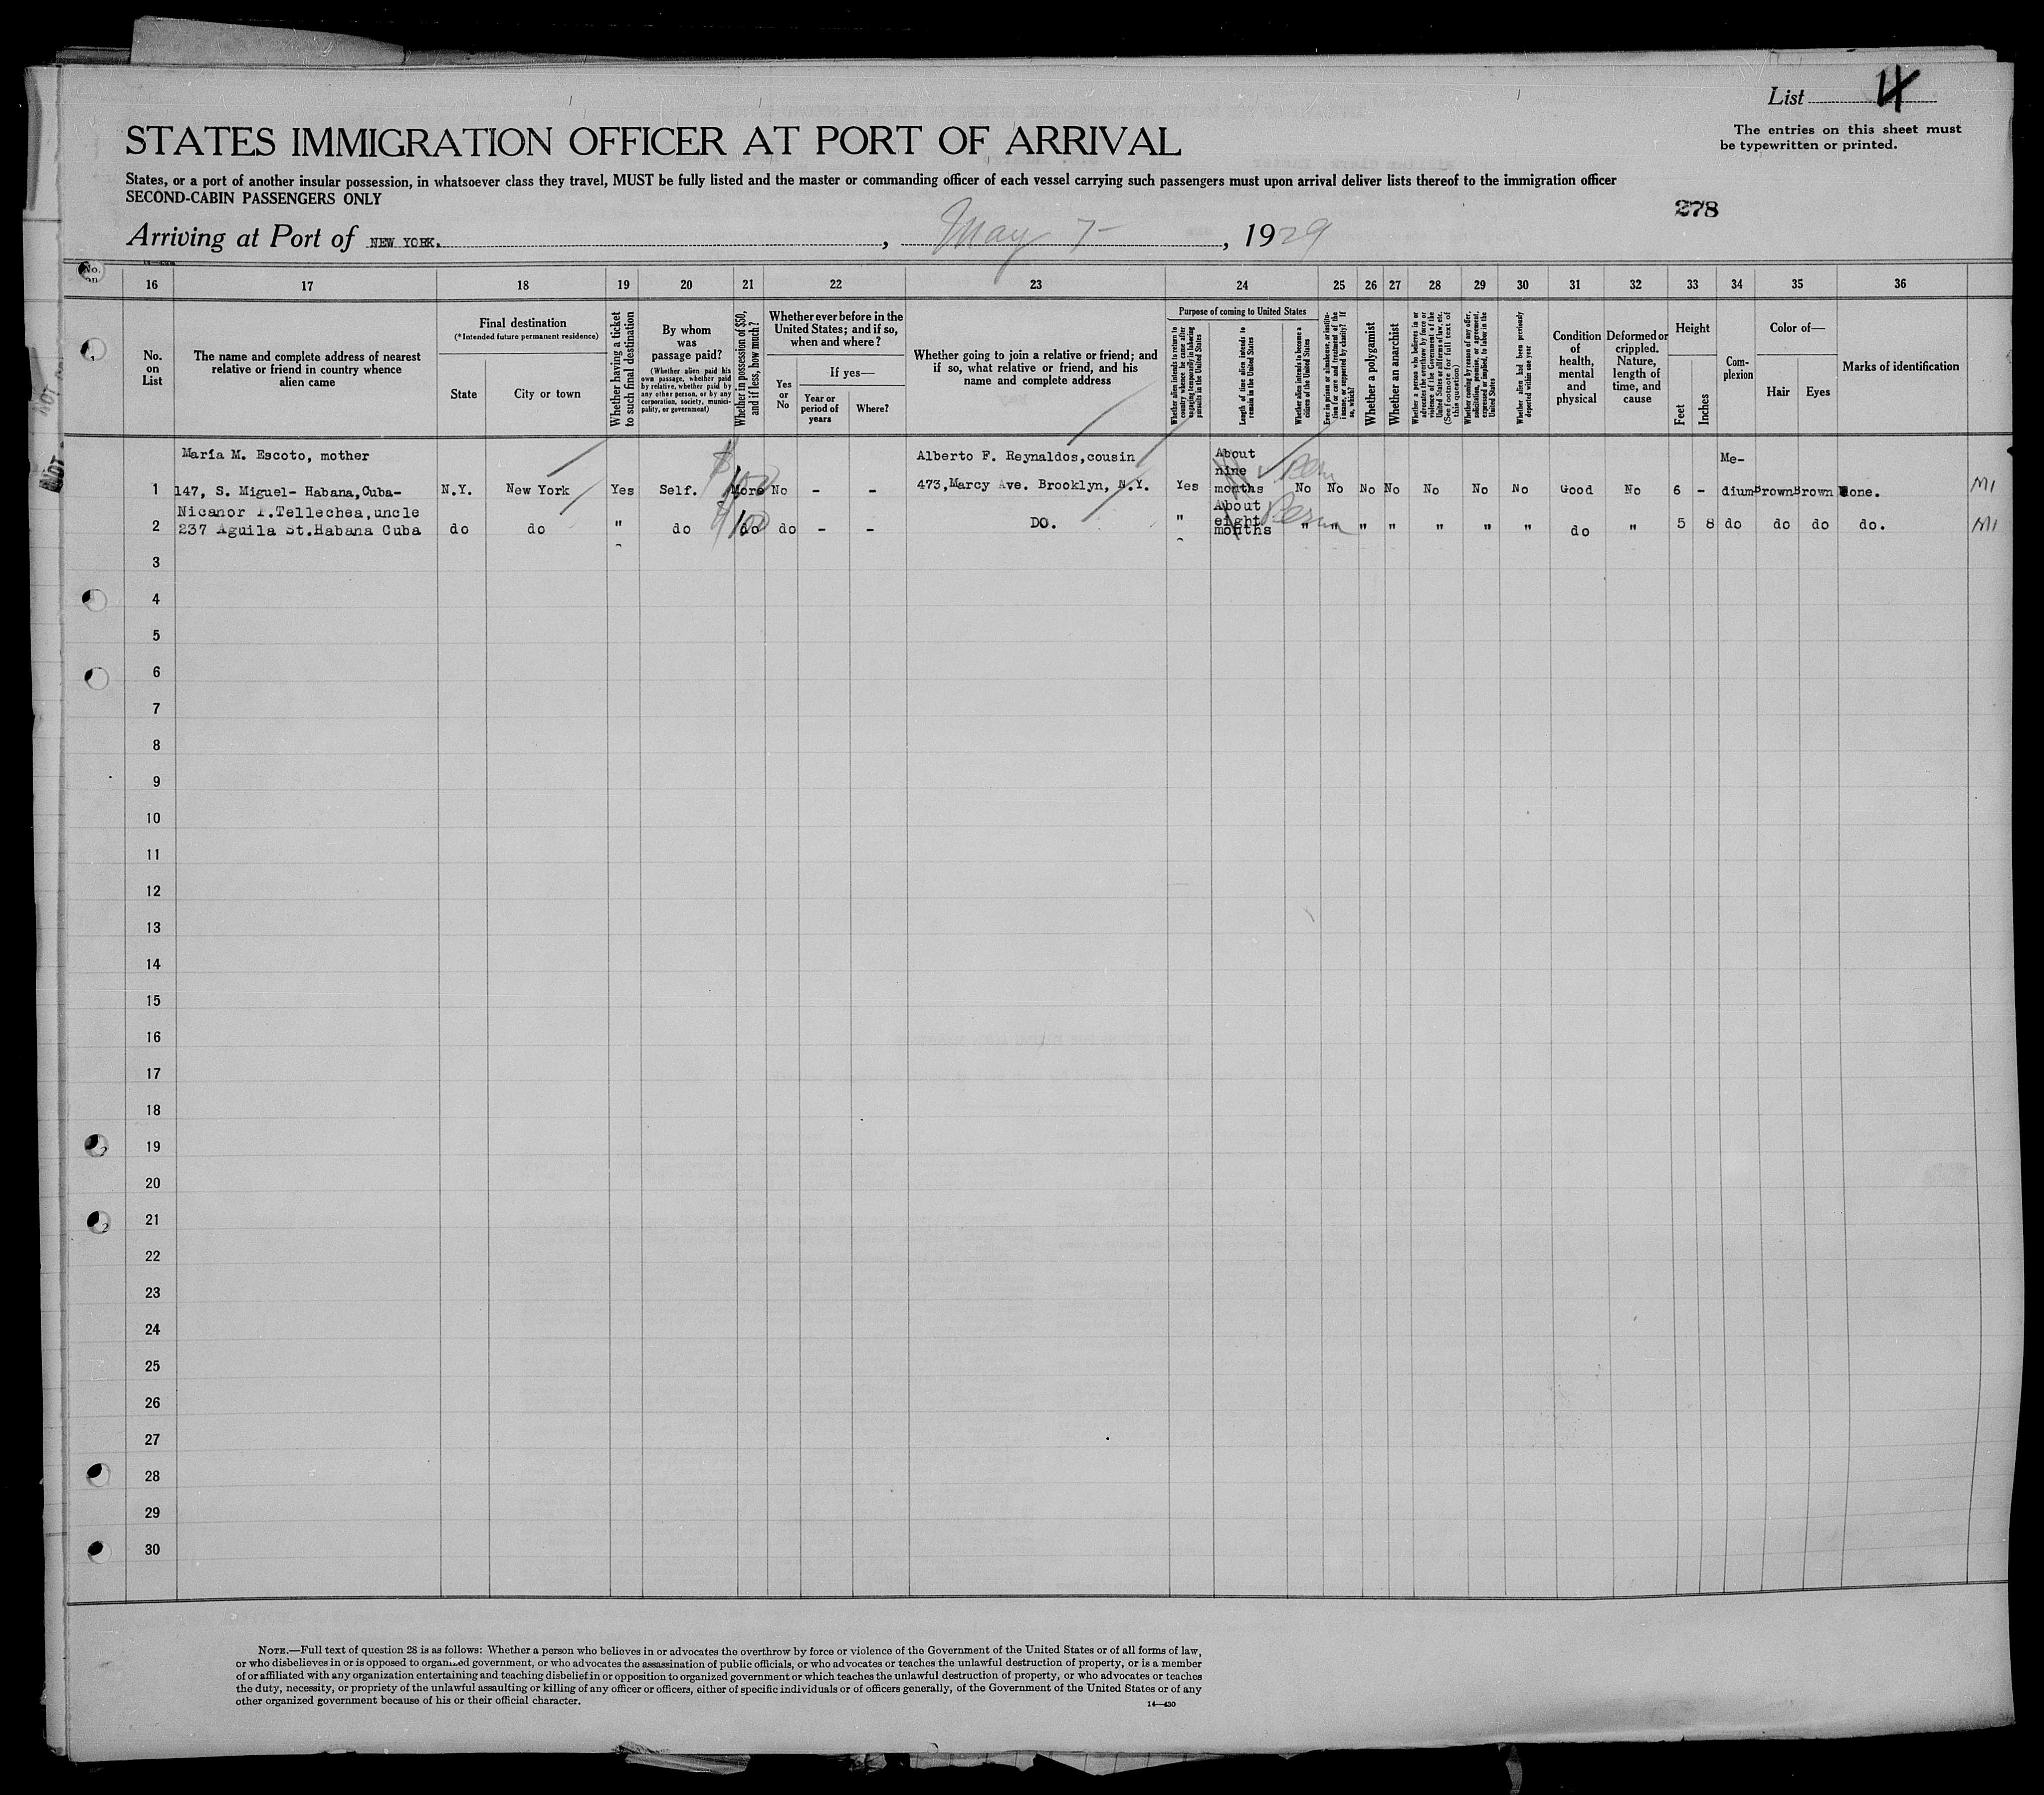 List 4
The entries on this sheet must
be typewritten or printed.
STATES IMMIGRATION OFFICER AT PORT OF ARRIVAL
States, or a port of another insular possession, in whatsoever class they travel, MUST be fully listed and the master or commanding officer of each vessel carrying such passengers must upon arrival deliver lists thereof to the immigration officer
SECOND-CABIN PASSENGERS ONLY
278
Arriving at Port of NEW YORK. , May 7 , 1929
16 17 18 19 20 21 22 23 24 25 26 27 28 29 30 31 32 33 34 35 36
No. on List
The name and complete address of nearest relative or friend in country whence alien came
Final destination
(*Intended future permanent residence)
State
City or town
Whether having a ticket to such final destination
By whom was passage paid?
(Whether alien paid his own passage, whether paid by relative, whether paid by any other person, or by any corporation, society, municipality, or government)
Whether in possession of $50, and if less, how much?
Whether ever before in the United States; and if so, when and where?
Yes or No
If yes—
Year or period of years
Where?
Whether going to join a relative or friend; and if so, what relative or friend, and his name and complete address
Purpose of coming to United States
Whether alien intends to return to country whence he came after engaging temporarily in laboring pursuits in the United States
Length of time alien intends to remain in the United States
Whether alien intends to become a citizen of the United States
Ever in prison or almshouse, or institution for care and treatment of the insane, or supported by charity? If so, which?
Whether a polygamist
Whether an anarchist
Whether a person who believes in or advocates the overthrow by force or violence of the Government of the United States or all forms of law, etc. (See footnote for full text of this question)
Whether coming by reason of any offer, solicitation, promise, or agreement, expressed or implied, to labor in the United States
Whether alien had been previously deported within one year
Condition of health, mental and physical
Deformed or crippled. Nature, length of time, and cause
Height
Feet
Inches
Com-plexion
Color of—
Hair
Eyes
Marks of identification
María M. Escoto, mother Alberto F. Reynaldos,cousin About nine Me-
1 147, S. Miguel- Habana,Cuba- N.Y. New York Yes Self. More No - - 473,Marcy Ave. Brooklyn, N.Y. Yes months No No No No No No No Good No 6 - dium Brown Brown None. M1
Nicanor .Tellechea,uncle About
2 237 Aguila St.Habana Cuba do do " do do do - - DO. " eight months " " " " " " " do " 5 8 do do do do. M1
3
4
5
6
7
8
9
10
11
12
13
14
15
16
17
18
19
20
21
22
23
24
25
26
27
28
29
30
NOTE.—Full text of question 28 is as follows: Whether a person who believes in or advocates the overthrow by force or violence of the Government of the United States or of all forms of law,
or who disbelieves in or is opposed to organized government, or who advocates the assassination of public officials, or who advocates or teaches the unlawful destruction of property, or is a member
of or affiliated with any organization entertaining and teaching disbelief in or opposition to organized government or which teaches the unlawful destruction of property, or who advocates or teaches
the duty, necessity, or propriety of the unlawful assaulting or killing of any officer or officers, either of specific individuals or of officers generally, of the Government of the United States or of any
other organized government because of his or their official character.
14—430